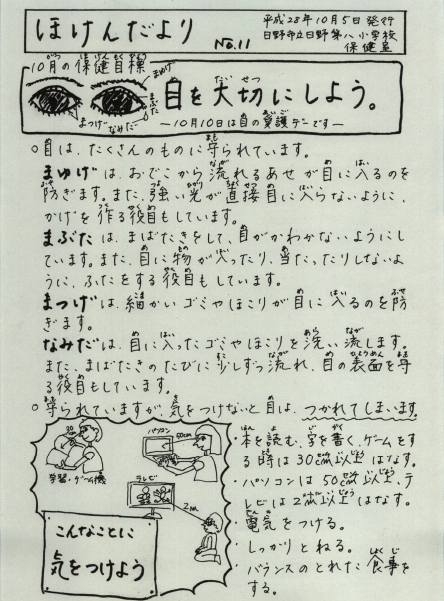 ほけんだより No.11
平成28年10月5日発行
日野市立日野第八小学校
保健室
10月の保健目標
目を大切にしよう。
まゆげ
まぶた
まつげ
なみだ
―10月10日は目の愛護デーです―
○目は、たくさんのものに守られています。
まゆげは、おでこから流れるあせが目に入るのを
防ぎます。また、強い光が直接目に入らないように、
かげを作る役目もしています。
まぶたは、まばたきをして、目がかわかないようにし
ています。また、目に物が火ったり、当たったりしないよ
うに、ふたをする役目もしています。
まつげは、細かいゴミやほこりが目に入るのを防
ぎます。
なみだは、目に入ったゴミやほこりを洗い流します。
また、まばたきのたびに少しずつ流れ、目の表面を守
る役目もしています。
○守られていますが、気をつけないと目は、つかれてしまいます。
30cm
学習・ゲーム機
パソコン
50cm
テレビ
2m
こんなことに
気をつけよう
・本を読む、字を書く、ゲームをす
る時は30cm以上はなす。
・パソコンは50cm以上、テ
レビは2m以上はなす。
・電気をつける。
・しっかりとねる。
・バランスのとれた食事を
する。